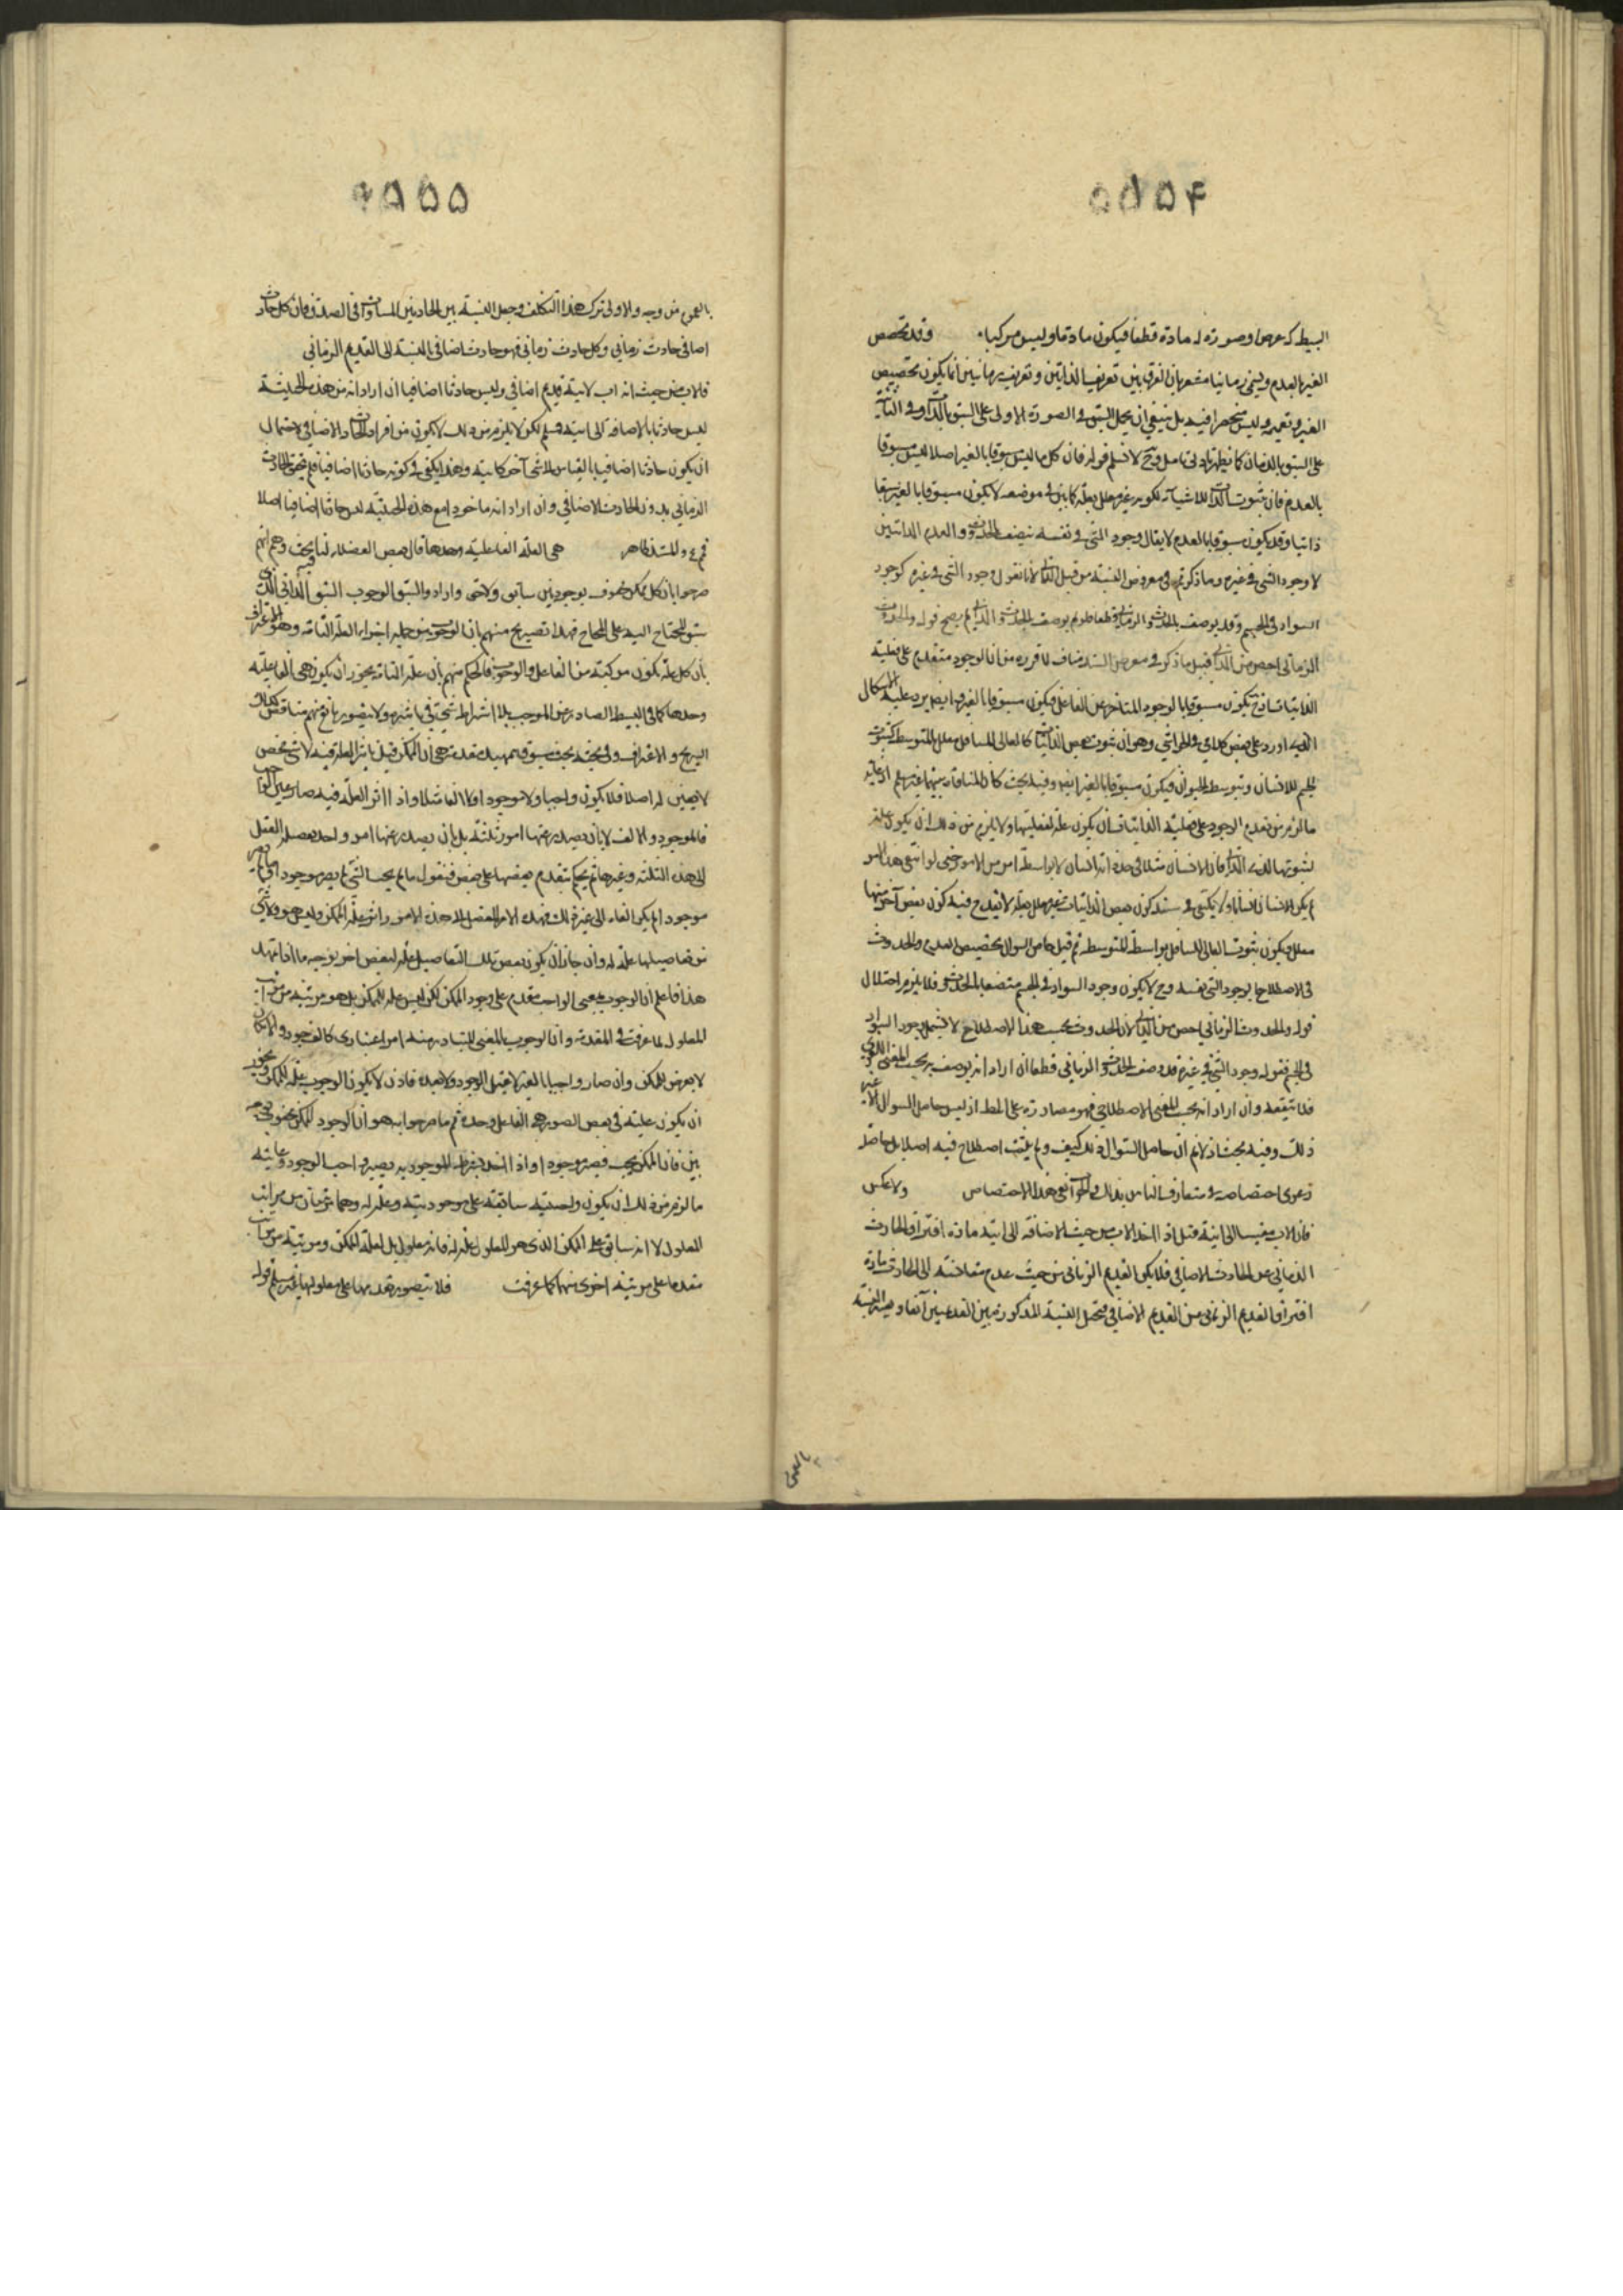 ٥٥٥٤
البسيط كه عرضا وصورة له مادة قطعا فيكون مادة ما وليس مركبا. وقد تخصص
الغير بالعدم ويسمى زمانيا مشعر بان الفرق بين تعريف الذاتيين وتعريف زمانيين انما يكون بتخصيص
الغير وتعميمه وليس منحصرا فيه بل ينبغي ان يحمل السبق في الصورة الاولى على السبق بالذات وفي الثانية
على السبق بالزمان كما يظهر بادنى تامل وح لا نسلم قوله فان كل ما ليس مسبوقا بالغير اصلا ليس مسبوقا
بالعدم فان ثبوت الذاتي للاشياء لكونه غير معلل بعلة كما بين في موضعه لا يكون مسبوقا بالغير سبقا
ذاتيا وقد يكون مسبوقا بالعدم لا يقال وجود الشي في نفسه يتصف بالحدوث والعدم الذاتيين
لا وجود الشي في غيره وما ذكرتم في معروض النسبة من قبيل الثاني لانا نقول وجود الشي في غيره كوجود
السواد في الجسم وقد يوصف بالحدوث الزماني قطعا فلو لم يوصف بالحدوث الذاتي لم يصح قوله والحدوث
الزماني اخص من الذاتي قيل ما ذكر في معرض السند مناف لما قرره من ان الوجود متقدم على فعلية
الذاتيات فح تكون مسبوقا بالوجود المتاخر عن الفاعل فيكون مسبوقا بالغير وايضا يرد عليه الاشكال
الذي اورد على بعض كلامي في الحواشي وهو ان ثبوت بعض الذاتيات كالعالي للسافل معلل بالمتوسط كثبوت
الجسم للانسان بتوسط الحيوان فيكون مسبوقا بالغير ايضا وفيه بحث كما المنافاة بينهما غير مسلم اذ غاية
ما لزم من تقدم الوجود على فعلية الذاتيات ان يكون علة لفعليتها ولا يلزم من ذلك ان يكون علة
لثبوتها للذات فان الانسان مثلا في حد ذاته انسان لا بواسطة امر من الامور حتى لو انتفى هذا الامر
لم يكن الانسان انسانا ولا يكفي في سند كون بعض الذاتيات غير معلل بعلة لا يقدح فيه كون بعض آخر منها
معلل فيكون ثبوت العالي للسافل بواسطة المتوسط ثم قيل حاصل السوال تخصيص العدم والحدوث
في الاصطلاح بوجود الشي بنفسه وح لا يكون وجود السواد في الجسم متصفا بالحدوث فلا يلزم اختلال
قوله والحدوث الزماني اخص من الذاتي لان الحدوث بحسب هذا الاصطلاح لا يشمل وجود السواد
في الجسم فقوله وجود الشي في غيره قد وصف بالحدوث الزماني قطعا ان اراد انه يوصف به بحسب المعنى اللغوي
فلا ينفعه وان اراد انه بحسب المعنى الاصطلاحي فهو مصادرة على المط اذ ليس حاصل السوال الا غير
ذلك وفيه بحث اذ لا نم ان حاصل السوال ذلك كيف ولم يثبت اصطلاح فيه اصلا بل حاصله
دعوى اختصاصه في متعارف الناس بذلك والجواب نفي هذا الاختصاص ولا عكس
فان الاب مقيسا الى ابنه قيل اذا اخذ الاب من حيث الاضافة الى ابنه مادة افتراق الحادث
الزماني عن الحادث الاضافي فلا يكن القديم الزماني من حيث عدم مقارنته الى الحادث مادة
افتراق القديم الزماني عن القديم الاضافي فتحصل النسبة المذكورة بين القديمين آنفا وهذه النسبة
بالعموم
٥٥٥
بالعموم من وجه والاولى ترك هذا التكلف وجعل النسبة بين الحادثين المساواة في الصدق فان كل حادث
اضافي حادث زماني وكل حادث زماني فهو حادث اضافي بالنسبة الى القديم الزماني
فالاب من حيث انه اب لابنه قديم اضافي وليس حادثا اضافيا ان اراد انه من هذه الحيثية
ليس حادثا بالاضافة الى ابنه فمسلم لكن لا يلزم من ذلك لا يكون من افراد الحادث الاضافي لاحتمال
ان يكون حادثا اضافيا بالقياس لا شي آخر كابيه وهذا يكفي في كونه حادثا اضافيا فلم يتحقق الحادث
الزماني بدون الحادث الاضافي وان اراد انه ماخوذا مع هذه الحيثية ليس حادثا اضافيا اصلا
فم والمستند ظاهر هي العلة الفاعلية وحدها قال بعض الفضلاء لنا فيه بحث وهم انهم
صرحوا بان كل ممكن محفوف بوجوبين سابق ولاحق وارادوا بالسبق الوجوب السبق الذاتي الذي
سبق المحتاج اليه على المحتاج فهذا تصريح منهم بان الوجوب من جملة اجزاء العلة التامة وهو اعتراف
بان كل علة تكون مركبة من الفاعل والوجوب فالحكم منهم بان علة التامة يجوز ان يكون هي الفاعلية
وحدها كما في البسيط الصادر عن الموجب بلا اشتراط شي في تاثيره ولا تصور مانع منهم مناقض لذلك
التصريح والاعتراف وفي بحثه بحث مسبوق بتمهيد مقدمة هي ان الممكن قبل تاثير العلة فيه لا شي محض
لا يعين له اصلا فلا يكون واجبا ولا موجودا ولا الفا مثلا واذا اثر العلة فيه صار عين الواجب
فالموجود والالف لا بان يصدر عنها امور ثلثة بل بان يصدر عنها امر واحد يفصله العقل
الى هذه الثلثة وغيرها ثم يحكم بتقدم بعضها على بعض فنقول ما لم يجب الشي لم يصر موجودا وما لم يصر
موجودا لم يكن الفا الى غير ذلك فهذا الامر المفصل الى هذه الامور اثر علة الممكن وليس هو ولا شي
من تفاصيلها علة له وان جاز ان يكون بعض تلك التفاصيل علة لبعض آخر بوجه ما اذا تمهد
هذا فاعلم ان الوجوب بمعنى الواجب مقدم على وجود الممكن لكن ليس علة للممكن بل هو مرتبة من مراتب
المعلول لما عرفت في المقدمة وان الوجوب بالمعنى المتبادر منه امر اعتباري كالوجود والامكان
لا يعرض الممكن وان صار واجبا بالغير لا قبل الوجود ولا بعده فاذن لا يكون الوجوب علة للممكن فيجوز
ان يكون علته في بعض الصور هي الفاعل وحده ثم ما صرحوا به هو ان الوجود الممكن محفوف بوجوبين
بين فان الممكن يجب فيصير موجودا واذا اخذ بشرط الموجودية يصير واجب الوجود وغاية
ما لزم من ذلك ان يكون واجبيته سابقة على موجوديته وعلة له وهما مرتبتان من مراتب
المعلول لا انه سابق على الممكن الذي هو المعلول علة له فانه معلول بل لعلة الممكن ومرتبة من مراتب
مقدما على مرتبة اخرى منها كما عرفت فلا يتصور تقدمها على معلولها غير مسلم قوله